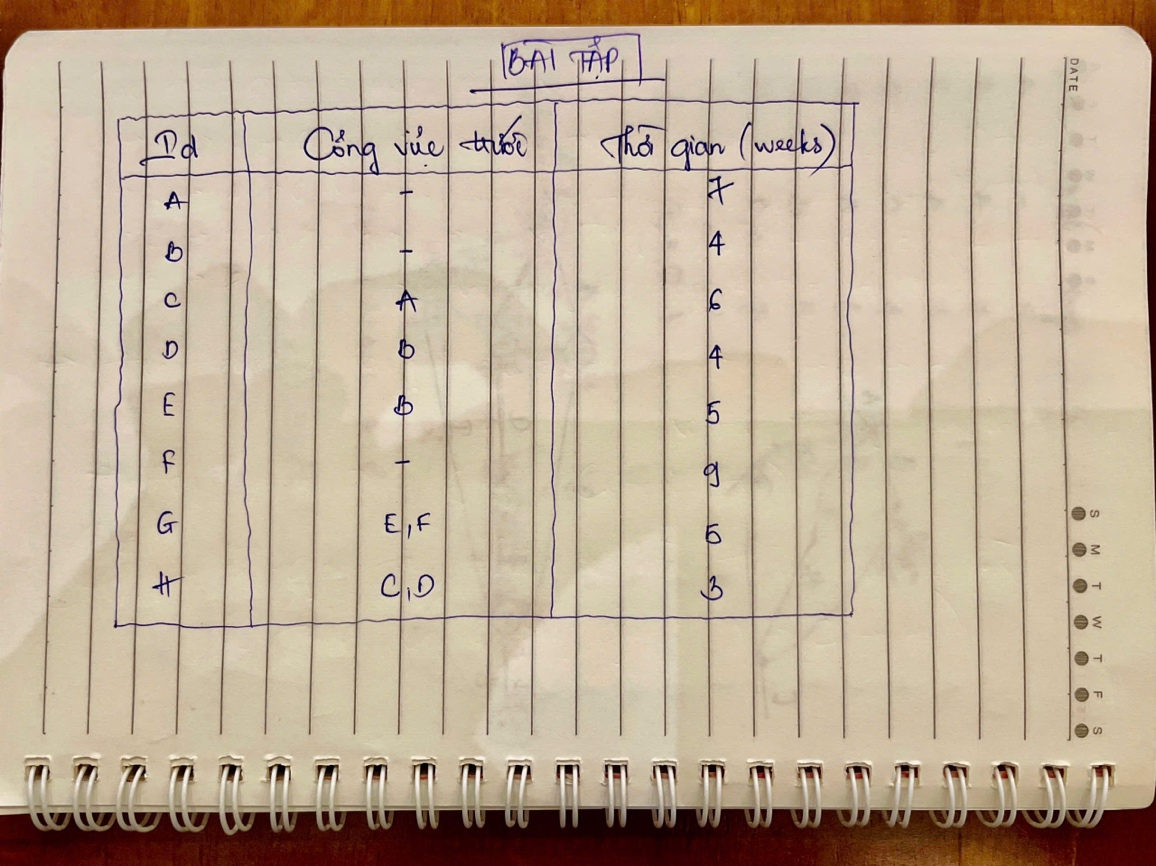 BÀI TẬP
Id Công việc trước Thời gian (weeks)
A - 7
B - 4
C A 6
D B 4
E B 5
F - 9
G E,F 5
H C,D 3
DATE
S M T W T F S